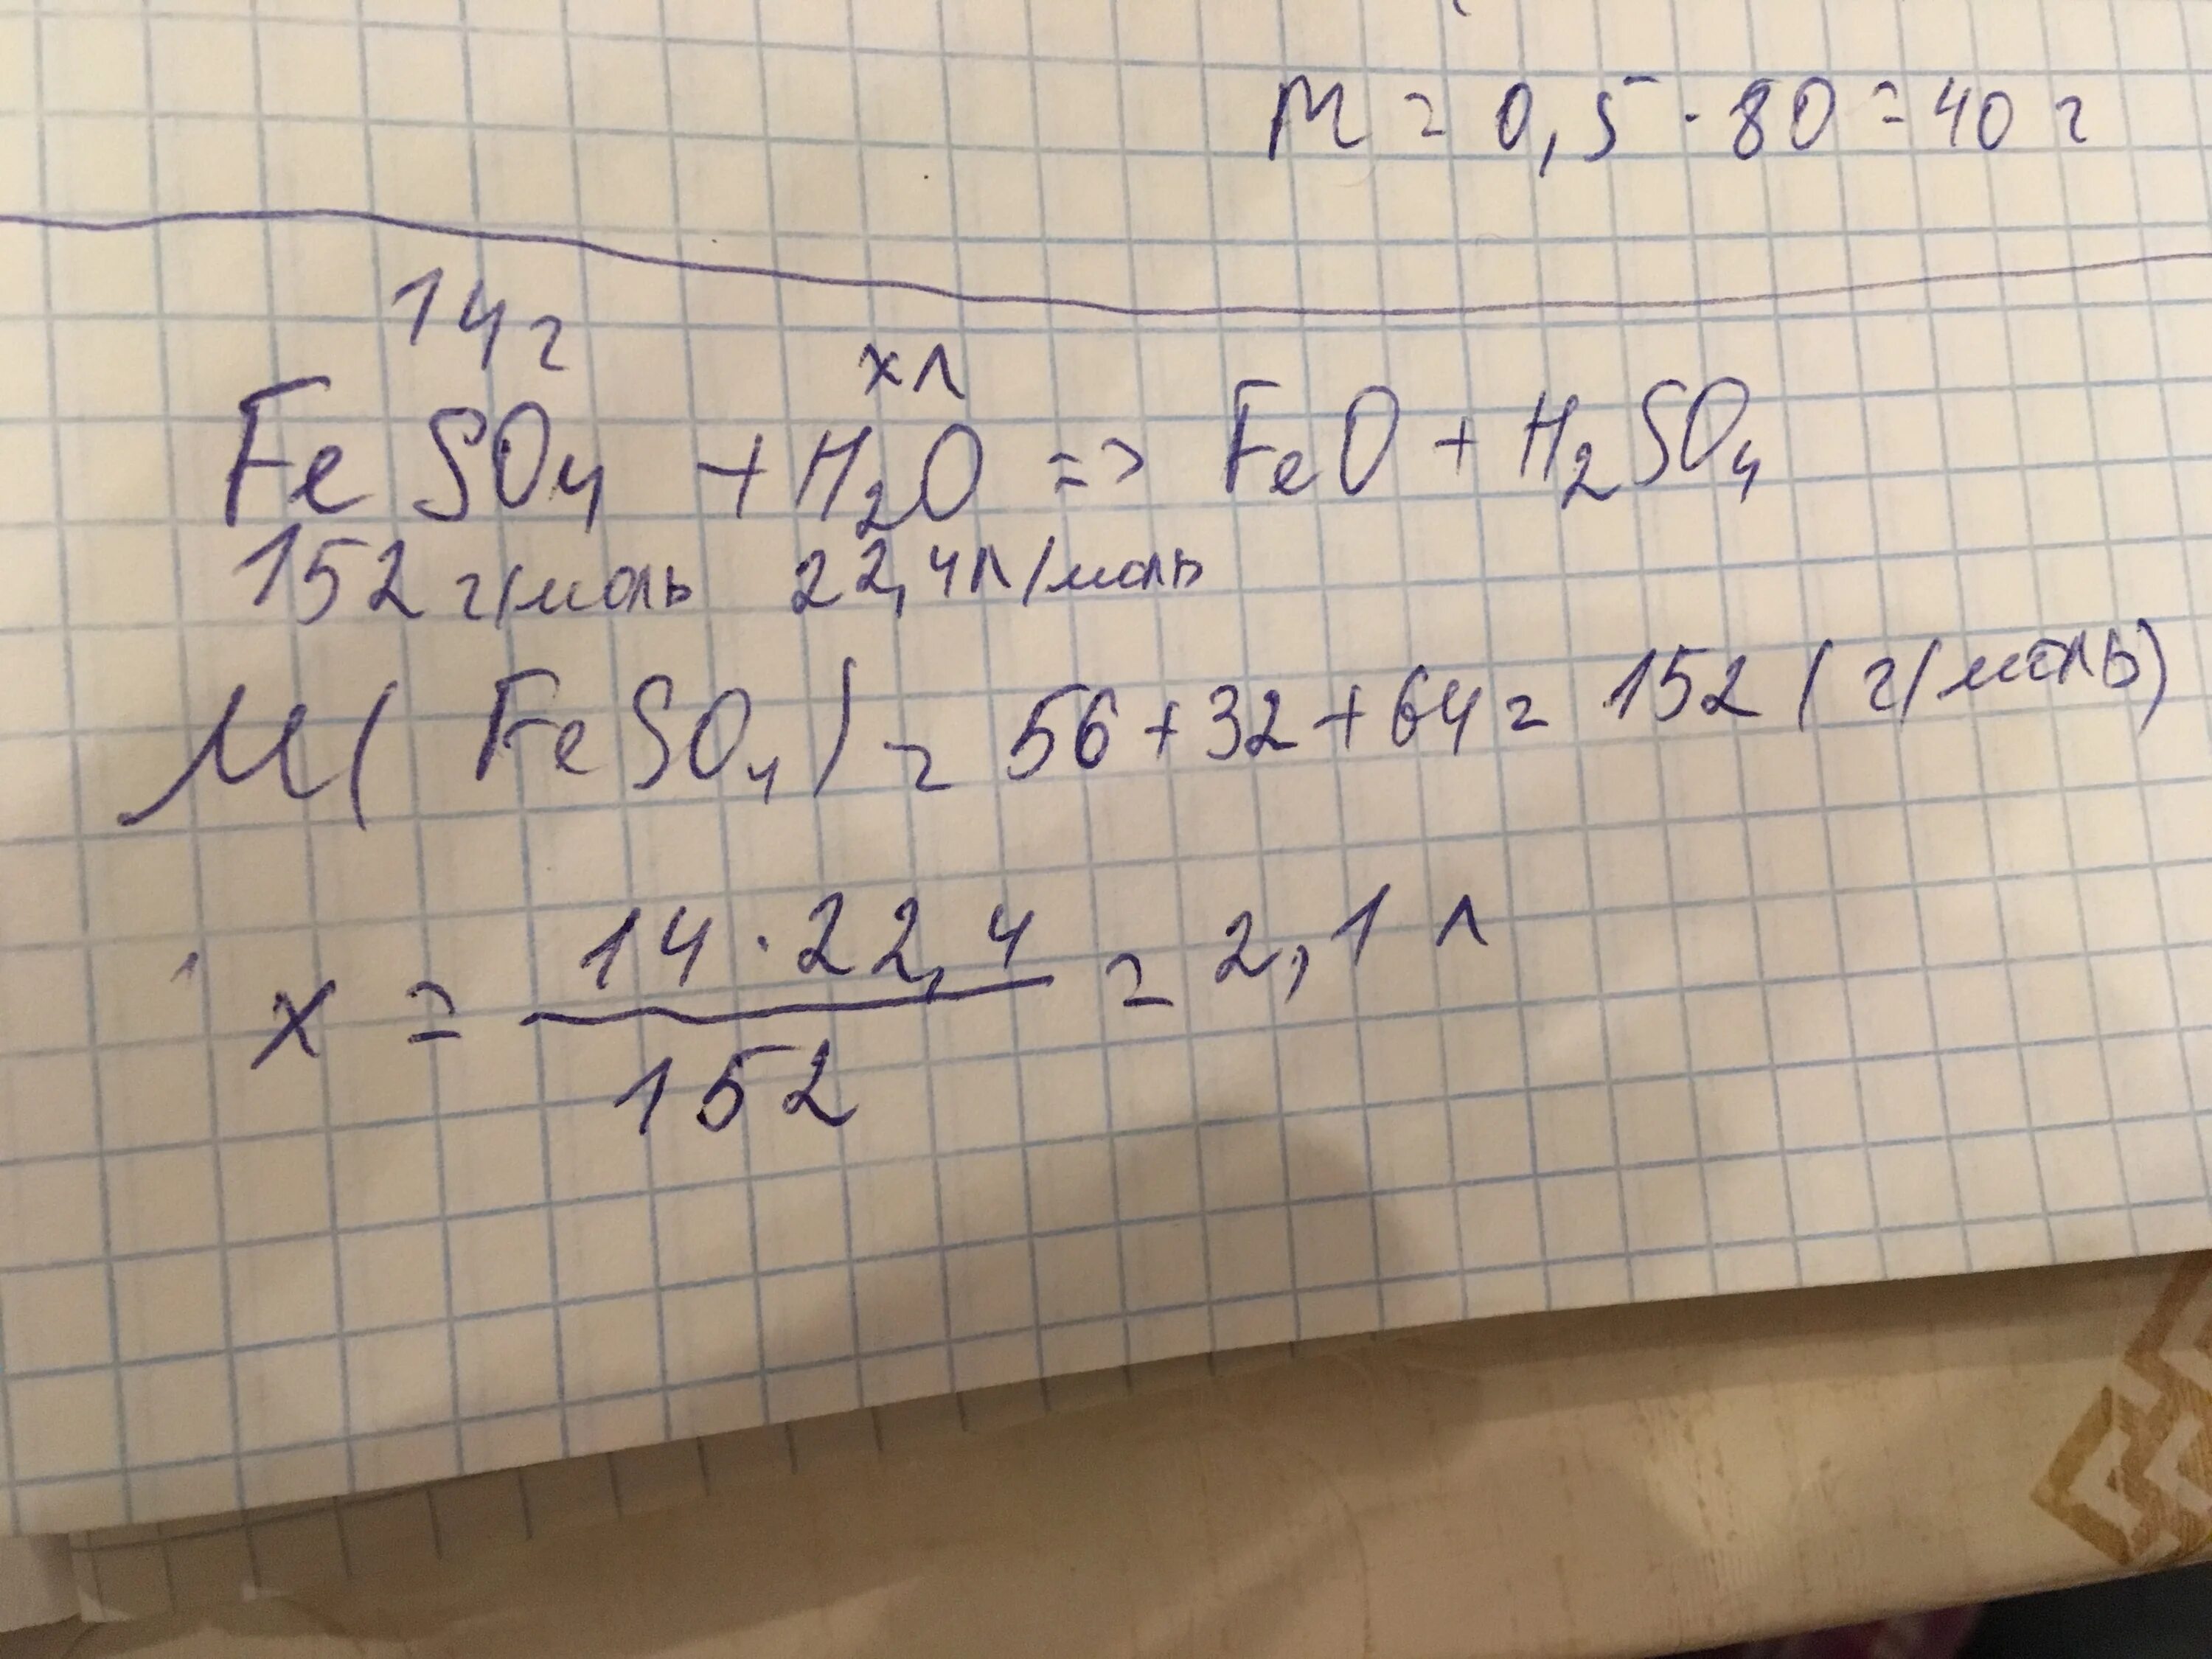 m = 0,5 · 80 = 40 г
14г
хл
FeSO₄ + H₂O => FeO + H₂SO₄
152 г/моль 22,4л/моль
M(FeSO₄) = 56 + 32 + 64 = 152 (г/моль)
x = 14 · 22,4 / 152 = 2,1 л